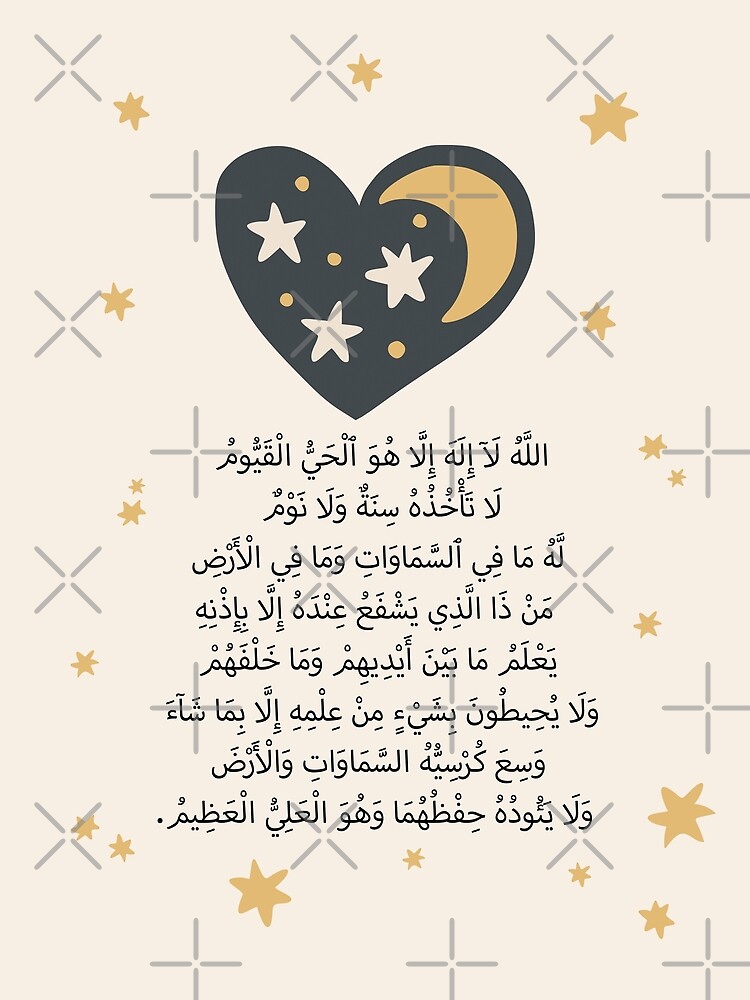 اللَّهُ لَآ إِلَهَ إِلَّا هُوَ ٱلْحَيُّ الْقَيُّومُ
لَا تَأْخُذُهُ سِنَةٌ وَلَا نَوْمٌ
لَّهُ مَا فِي ٱلسَّمَاوَاتِ وَمَا فِي الْأَرْضِ
مَنْ ذَا الَّذِي يَشْفَعُ عِنْدَهُ إِلَّا بِإِذْنِهِ
يَعْلَمُ مَا بَيْنَ أَيْدِيهِمْ وَمَا خَلْفَهُمْ
وَلَا يُحِيطُونَ بِشَيْءٍ مِنْ عِلْمِهِ إِلَّا بِمَا شَآءَ
وَسِعَ كُرْسِيُّهُ السَّمَاوَاتِ وَالْأَرْضَ
وَلَا يَئُودُهُ حِفْظُهُمَا وَهُوَ الْعَلِيُّ الْعَظِيمُ.